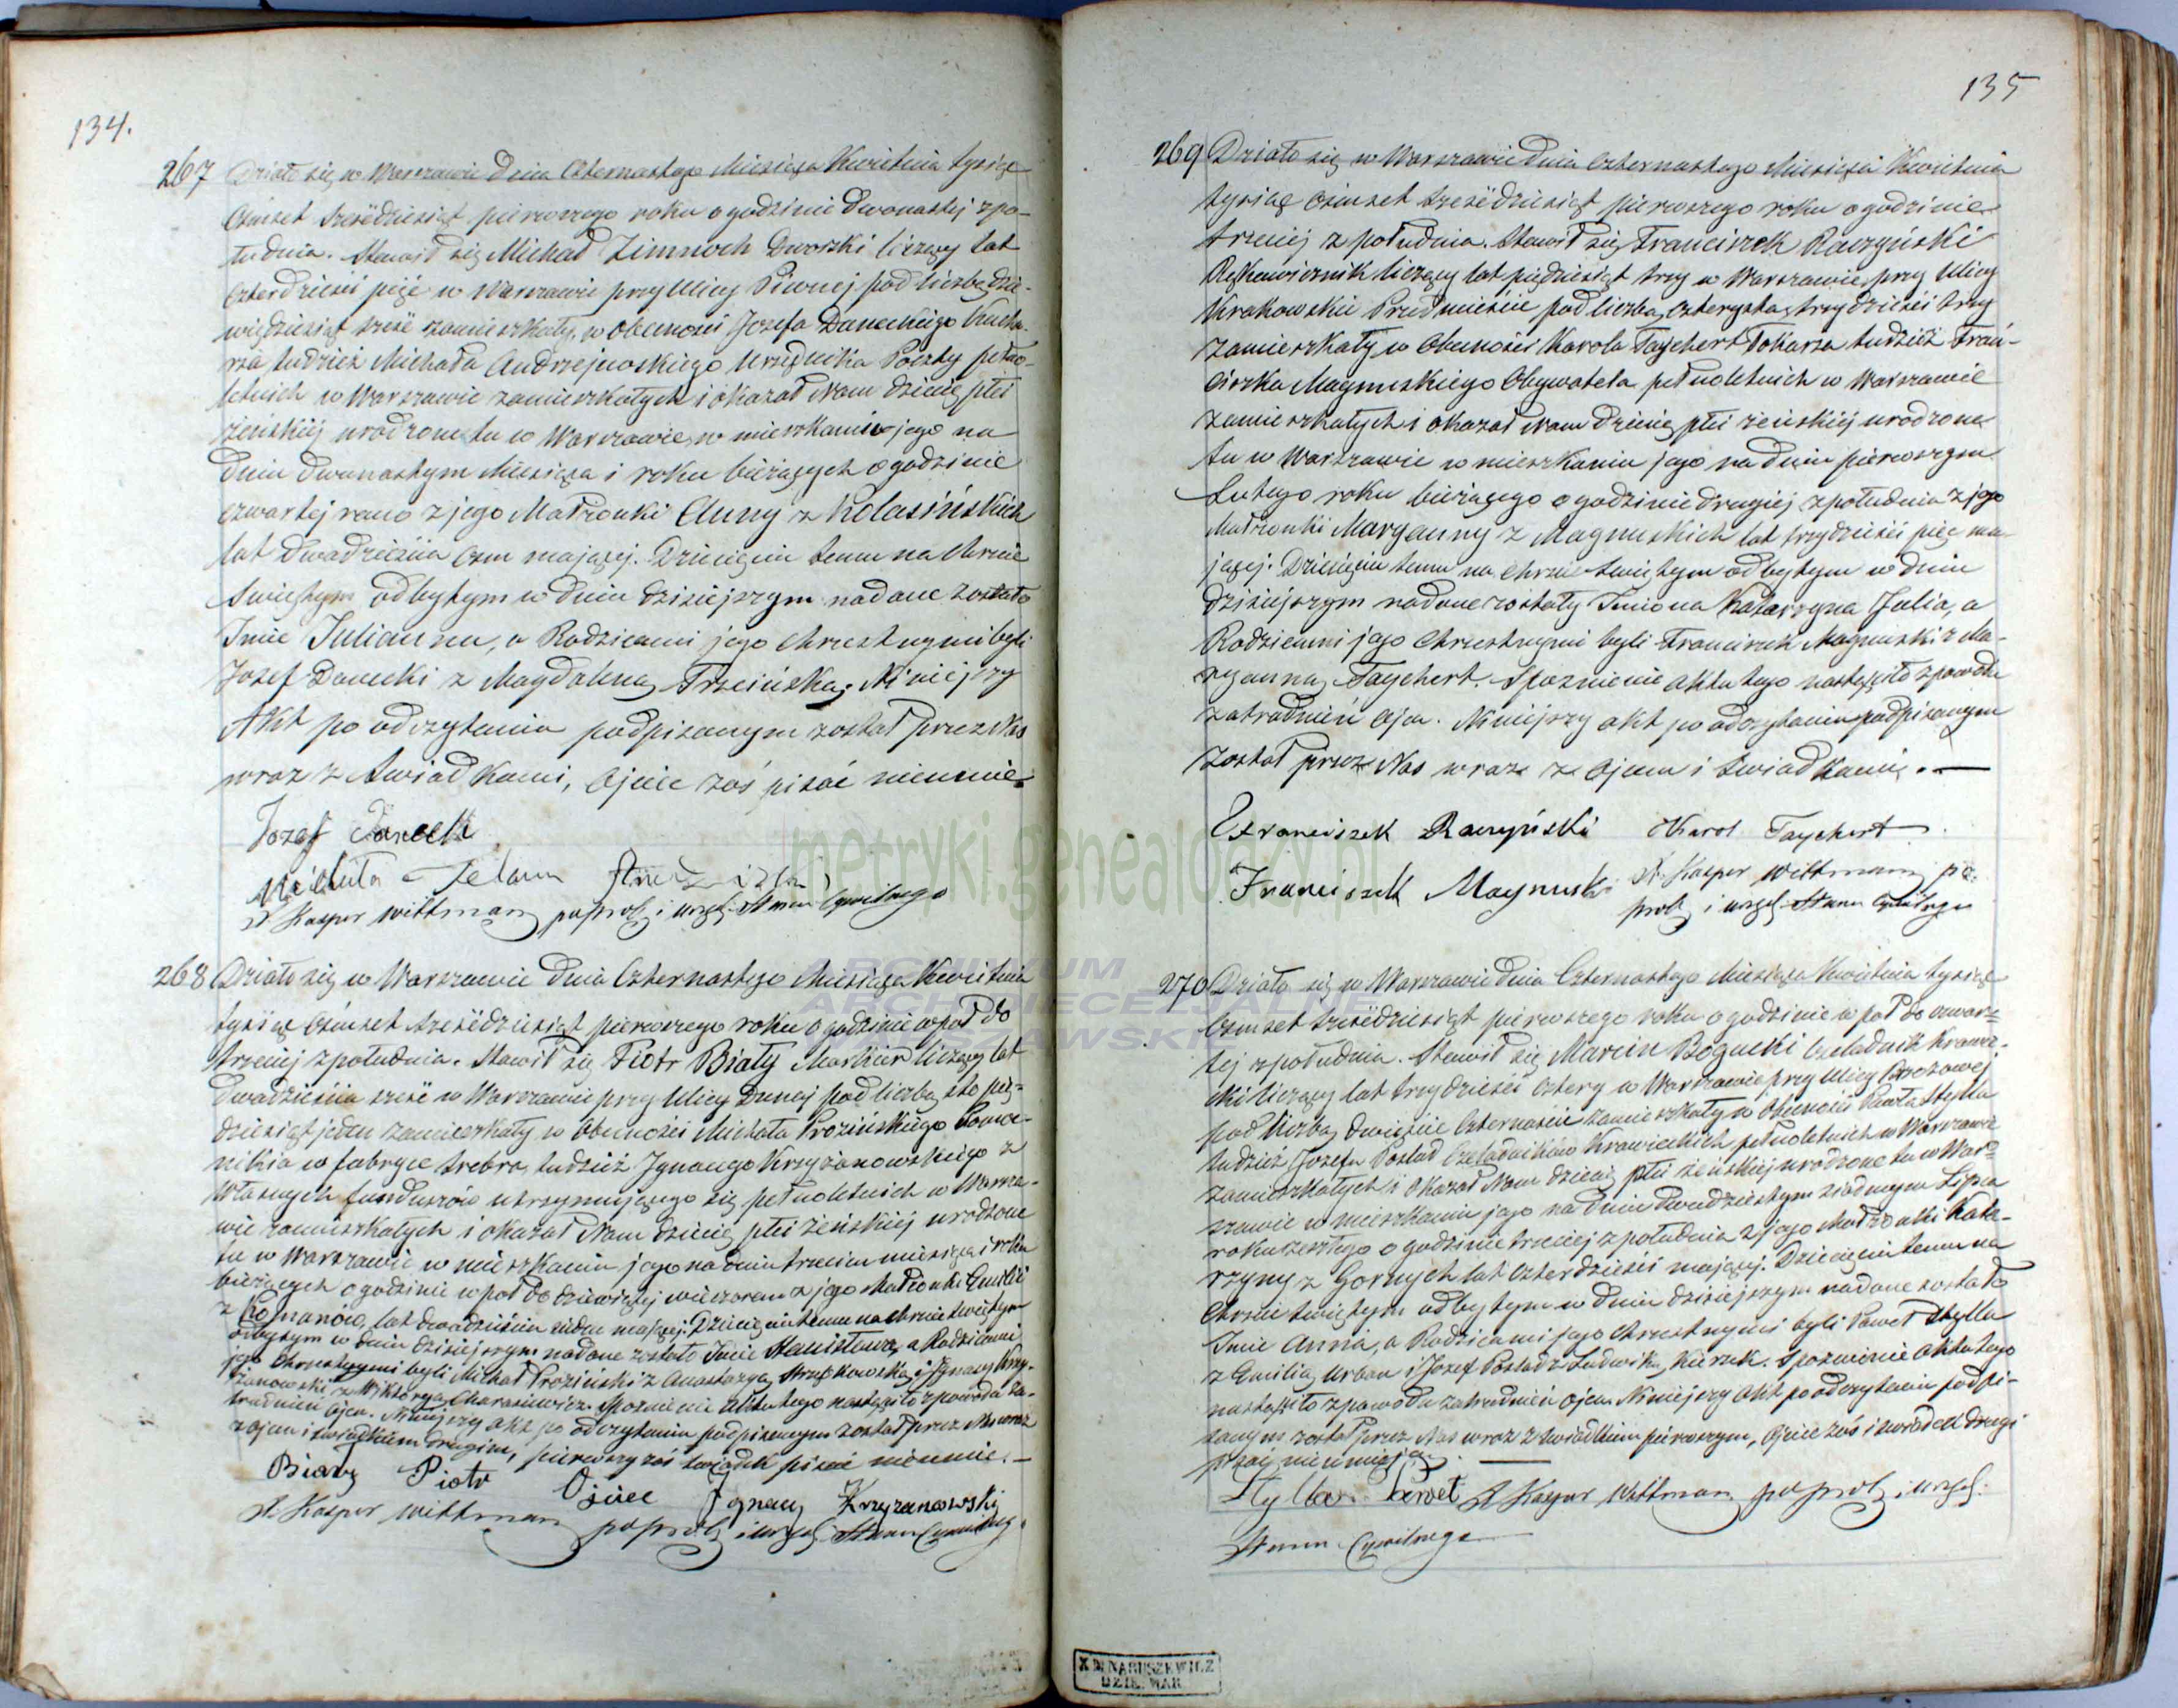 134.
267 Działo się w Warszawie dnia Czternastego Miesiąca Kwietnia tysiąc
Ośmset Sześćdziesiąt pierwszego roku o godzinie dwonastej z po-
łudnia. Stawił się Michał Zimnoch Dworski liczący lat
Czterdzieści pięć w Warszawie przy Ulicy Piwnej pod liczbą dzie-
więdziesiąt sześć zamieszkały, w obecności Jozefa Daneckiego Kucha-
rza tudzież Michała Andrzejewskiego Urzędnika Poczty pełno-
letnich w Warszawie zamieszkałych i okazał Nam dziecię płci
żeńskiéj urodzone tu w Warszawie w mieszkaniu jego na
dniu dwunastym Miesiąca i roku bieżących o godzinie
czwartej rano z jego Małżonki Anny z Kolasińskich
lat dwadzieścia ośm mającéj. Dziecięciu temu na Chrzcie
Świętym odbytym w dniu dzisiejszym nadane zostało
Imie Julianna, a Rodzicami jego Chrzestnymi byli
Jozef Danecki z Magdaleną Trzcińską. Niniejszy
Akt po odczytaniu podpisanym został przez Nas
wraz z Świadkami, Ojciec zaś pisać nieumie.
Jozef
X Kasper Wittmann p o prob i urzęd. Stanu Cywilnego
268 Działo się w Warszawie dnia Czternastego Miesiąca Kwietnia
tysiąc Ośmset sześćdziesiąt pierwszego roku o godzinie w pół do
trzeciej z południa. Stawił się Piotr Biały Markier liczący lat
dwadzieścia sześć w Warszawie przy Ulicy Dunaj pod liczbą sto pięć-
dziesiąt jeden zamieszkały w obecności Michała Prozińskiego Pomoc-
nika w fabryce srebra, tudzież Ignacego Krzyżanowskiego z
własnych funduszów utrzymującego się pełnoletnich w Warsza-
wie zamieszkałych i okazał Nam dziecię płci żeńskiéj urodzone
tu w Warszawie w mieszkaniu jego na dniu trzecim miesiąca i roku
bieżących o godzinie w pół do dziewiątej wieczorem z jego Małżonki Emilii
z lat dwadzieścia jeden mającéj. Dziecięciu temu na chrzcie świętym
odbytym w dniu dzisiejszym nadane zostało Imie Stanisława, a Rodzicami
jego Chrzestnymi byli Michał Proziński z Anastazyą i Ignacy Krzy-
żanowski z Wiktoryą Spoźnienie aktu tego nastąpiło z powodu za-
trudnień Ojca. Niniejszy akt po odczytaniu podpisanym został przez Nas wraz
z Ojcem i świadkiem drugim, pierwszy zaś świadek pisać nieumie. —
Biały Piotr Ojciec Ignacy Krzyzanowski
X Kasper Wittmann p o prob i urzęd. Stanu Cywilneg.
135
269 Działo się w Warszawie dnia Czternastego Miesiąca Kwietnia
tysiąc Ośmset sześćdziesiąt pierwszego roku o godzinie
trzeciej z południa. Stawił się Franciszek Raczyński
Rękawicznik liczący lat piędziesiąt trzy w Warszawie przy Ulicy
Krakowskie Przedmieście pod liczbą czterysta trzydzieści trzy
zamieszkały w obecności Karola Taychert Tokarza tudzież Fran-
ciszka Magnuskiego Obywatela pełnoletnich w Warszawie
zamieszkałych i okazał Nam dziecię płci żeńskiéj urodzone
tu w Warszawie w mieszkaniu jego na dniu pierwszym
Lutego roku bieżącego o godzinie drugiej z południa z jego
Małżonki Maryanny z Magnuskich lat trzydzieści pięć ma-
jącej. Dziecięciu temu na Chrzcie świętym odbytym w dniu
dzisiejszym nadane zostały Imiona Katarzyna Julia, a
Rodzicami jego Chrzestnymi byli Franciszek Magnuski z Ma-
ryanną Taychert. Spoznienie aktu tego nastąpiło z powodu
zatrudnień Ojca. Niniejszy akt po odczytaniu podpisanym
został przez Nas wraz z Ojcem i świadkami. —
Franciszek Raczyński Karol Taychert
Franciszek Magnuski X. Kasper Wittmann p o.
prob i urzęd. Stanu Cywilnego
270 Działo się w Warszawie dnia Czternastego Miesiąca Kwietnia tysiąc
Ośmset sześćdziesiąt pierwszego roku o godzinie w pół do czwar-
tej z południa. Stawił się Marcin Bogucki Czeladnik Krawie-
cki liczący lat trzydzieści cztery w Warszawie przy Ulicy Brzozowéj
pod liczbą dwieście czternaście zamieszkały w obecności Pawła Stylla
tudzież Jozefa Czeladników Krawieckich pełnoletnich w Warszawie
zamieszkałych i okazał Nam dziecię płci żeńskiéj urodzone tu w War-
szawie w mieszkaniu jego na dniu dwudziestym siódmym Lipca
roku zeszłego o godzinie trzeciej z południa z jego Małżonki Kata-
rzyny z Gornych lat czterdzieści mającéj. Dziecięciu temu na
Chrzcie świętym odbytym w dniu dzisiejszym nadane zostało
Imie Anna, a Rodzicami jego Chrzestnymi byli Paweł Stylla
z Emilią Urban i Jozef z Ludwiką Spoznienie Aktu tego
nastąpiło z powodu zatrudnień Ojca. Niniejszy Akt po odczytaniu podpi-
sanym został przez Nas wraz z świadkiem pierwszym, Ojciec zaś i świadek drugi
pisać nieumieją. —
Stylla Paweł X Kasper Wittmann p o prob i urzęd.
Stanu Cywilnego
metryki.genealodzy.pl
ARCHIWUM
ARCHIDIECEZJALNE
WARSZAWSKIE
X DI NARUSZEWICZ
DZIE. WAR.